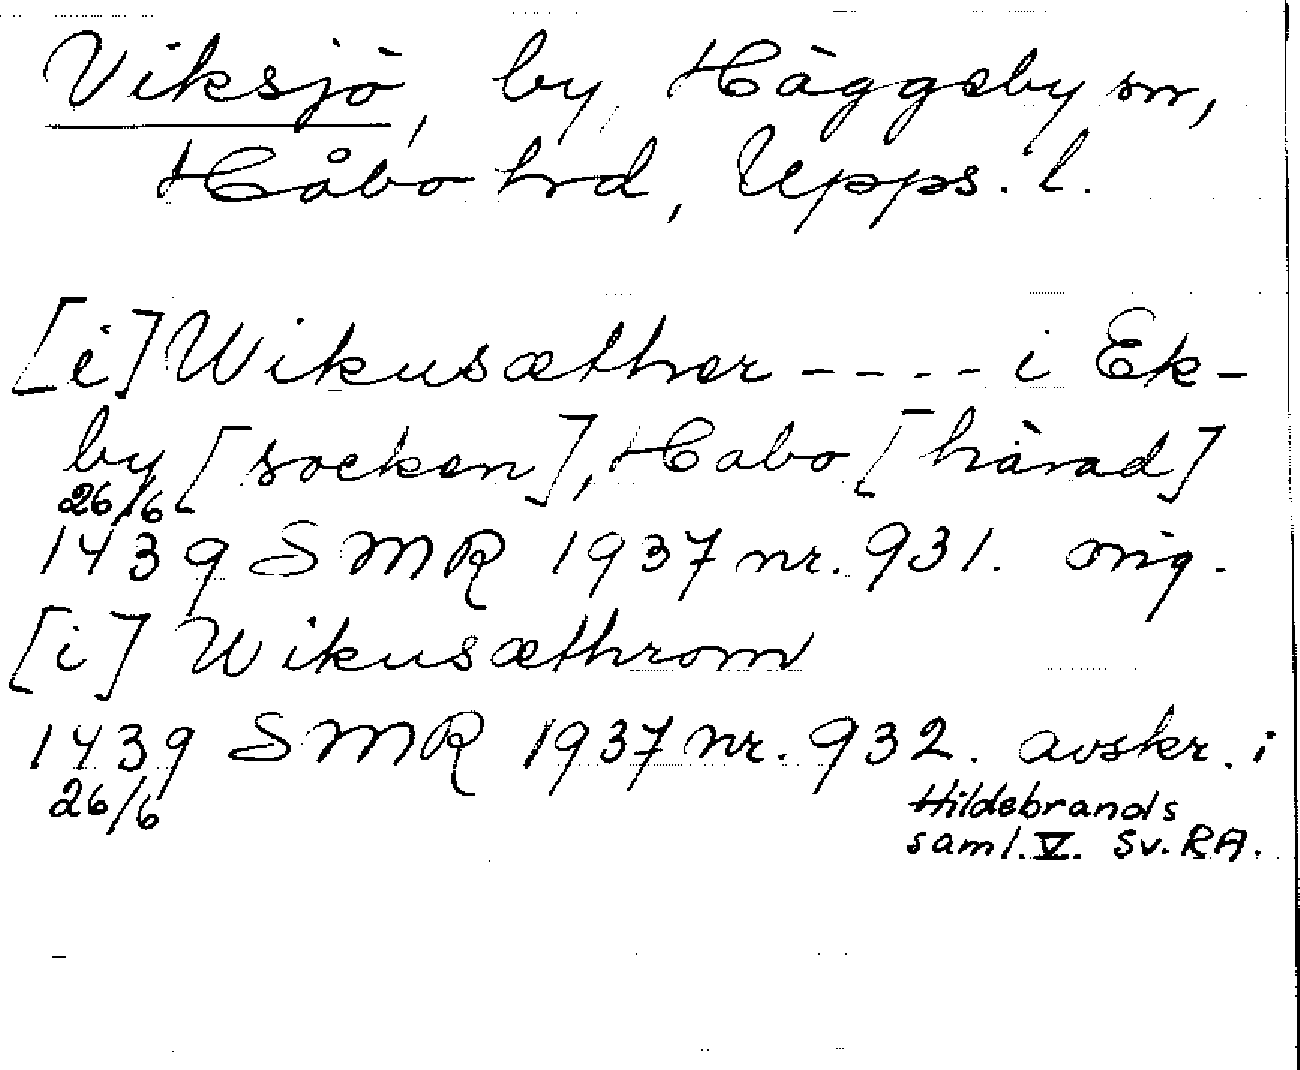 Viksjö, by, Häggeby sn,
Håbo hrd, Upps. l.
[i] Wikusæther ---- i Ek-
by [socken], Habo [härad]
26/6
1439 SMR 1937 nr. 931. orig.
[i] Wikusæthrom
1439 SMR 1937 nr. 932. avskr. i
26/6 Hildebrands
saml. V. Sv. RA.